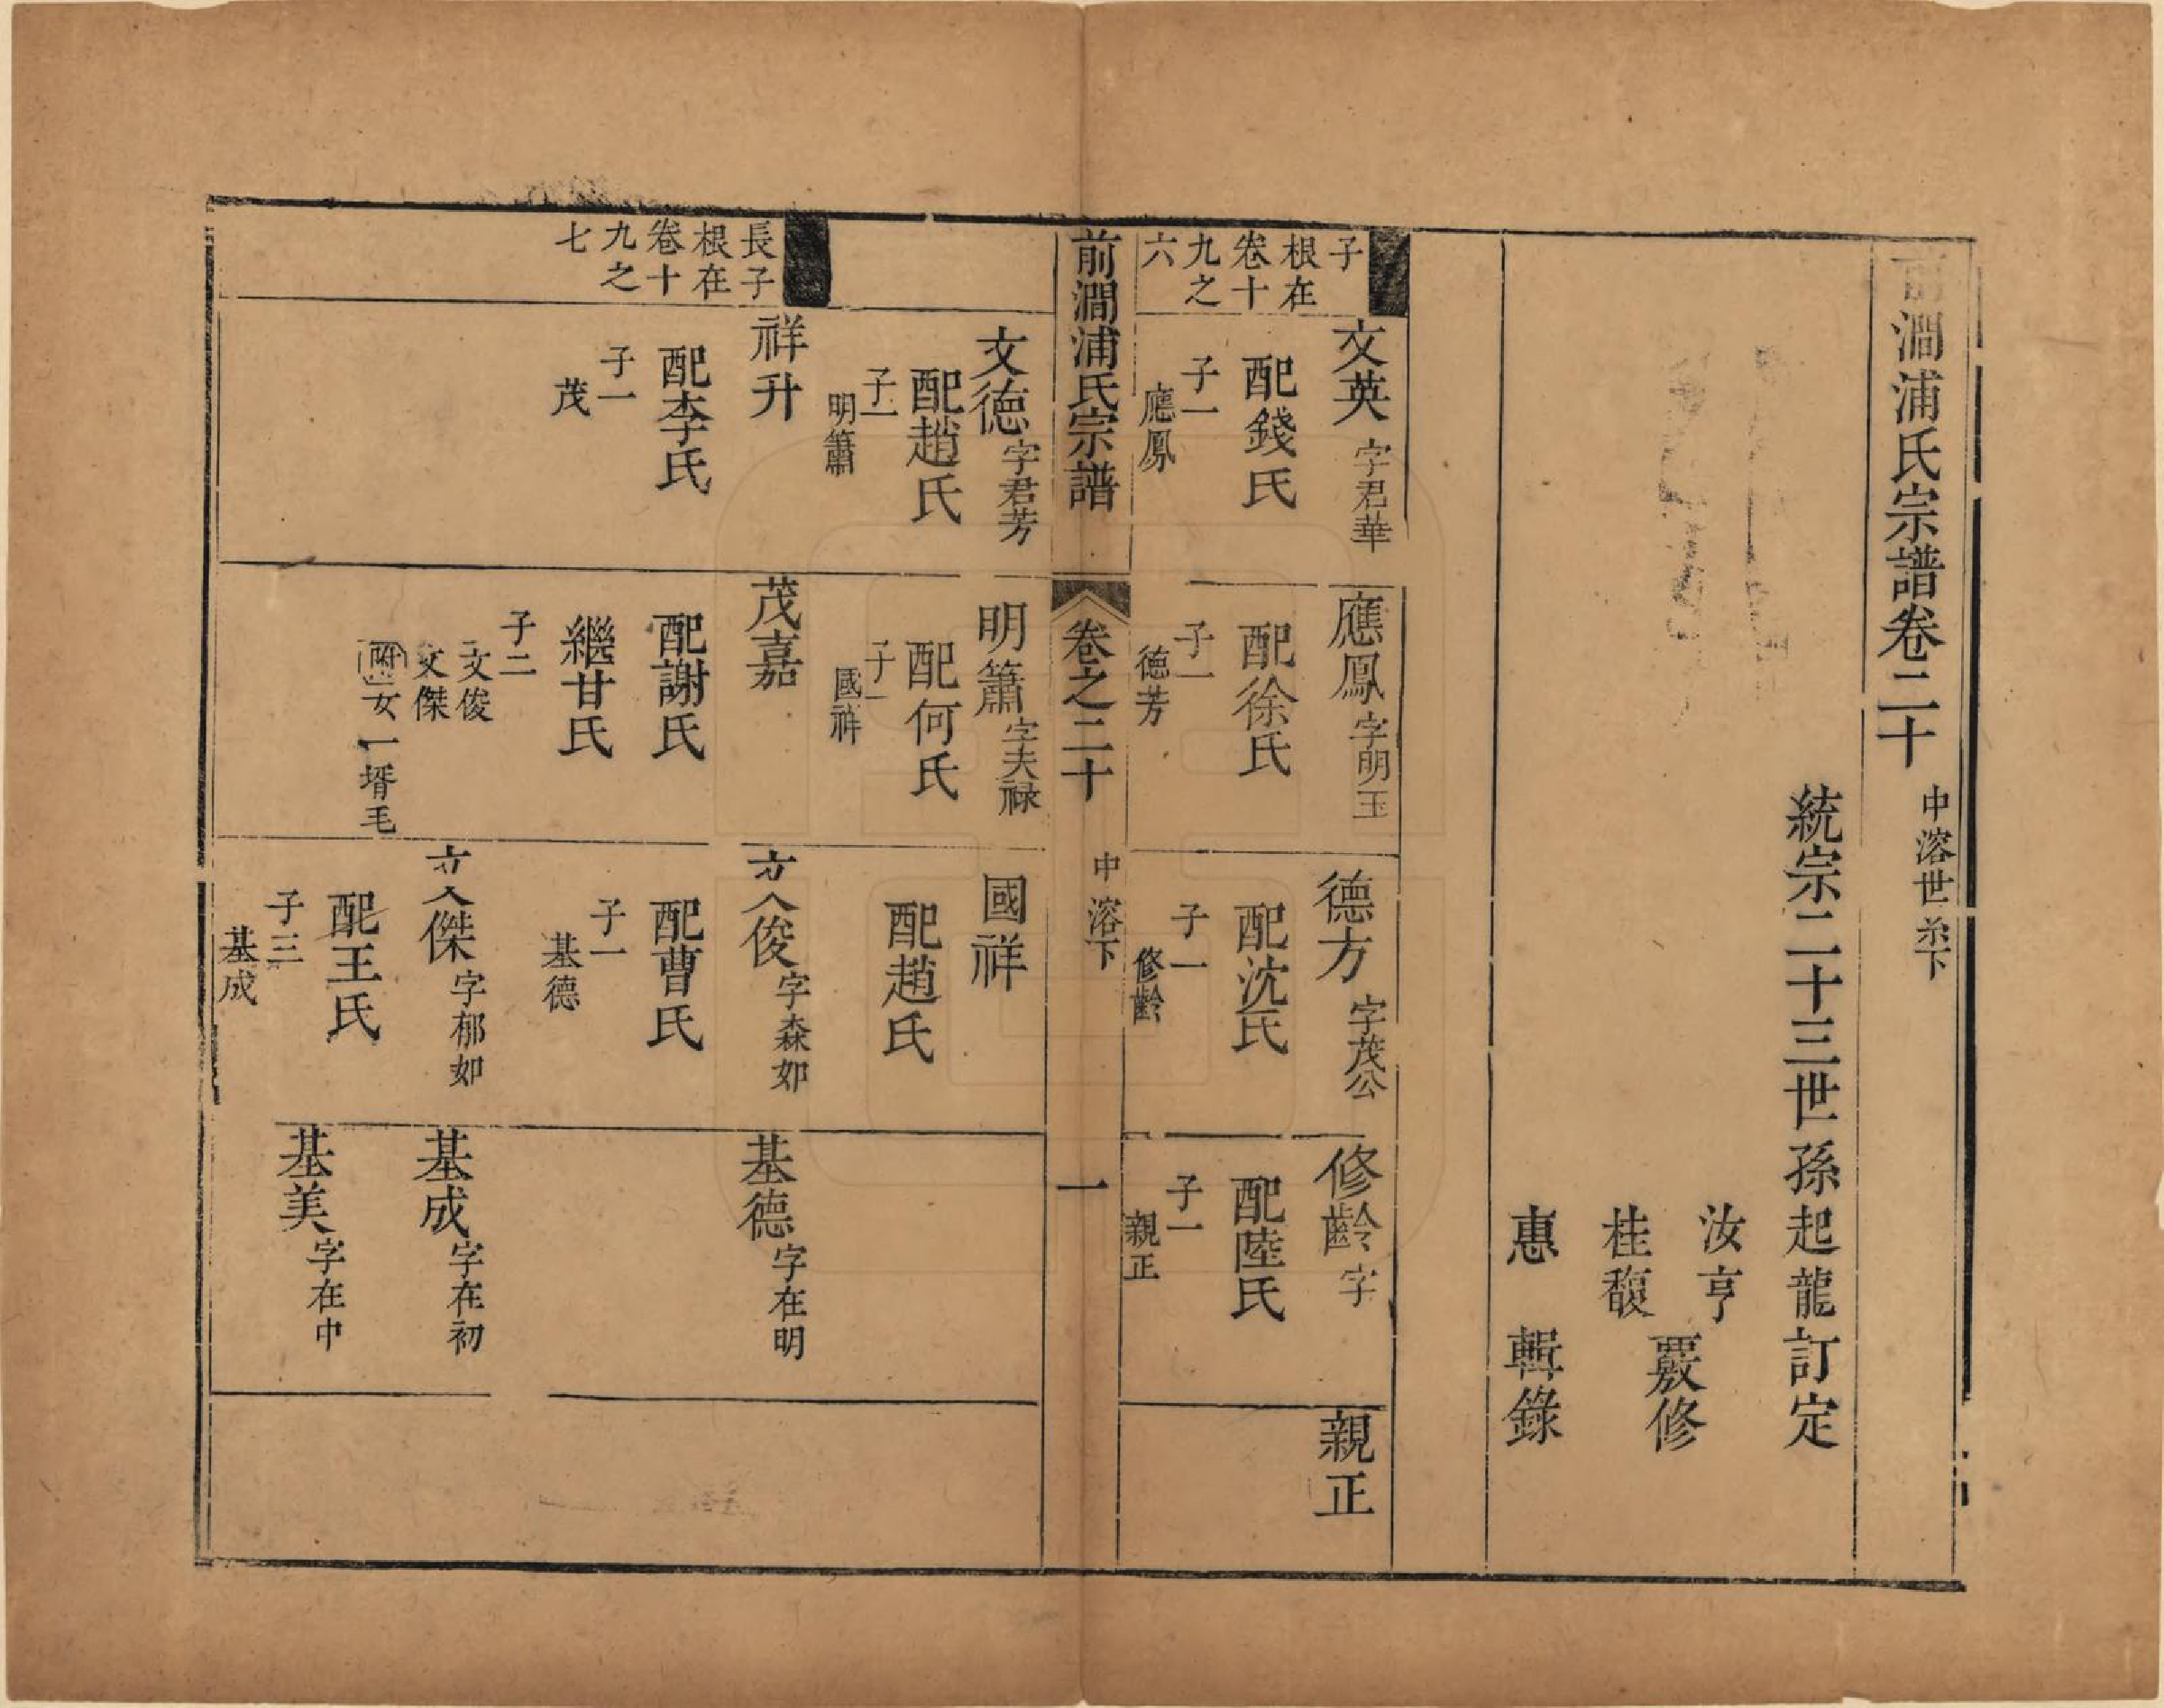 前澗浦氏宗譜卷二十
中溶世系下
統宗二十三世孫起龍訂定
汝亨
桂馥
覈修
惠 輯錄
子
根在
卷十
九之
六
文英 字君華
配錢氏
子一
應鳳
應鳳 字明玉
配徐氏
子一
德芳
德方 字茂公
配沈氏
子一
修齡
修齡 字
配陸氏
子一
親正
親正
前澗浦氏宗譜 卷之二十 中溶下 一
文德 字君芳
配趙氏
子一
明簫
明簫 字夫祿
配何氏
子一
國祥
國祥
配趙氏
長子
根在
卷十
九之
七
祥升
配李氏
子一
茂
茂嘉
配謝氏
繼甘氏
子二
文俊
文傑
女一壻毛
文俊 字森如
配曹氏
子一
基德
基德 字在明
文傑 字郁如
配王氏
子三
基成
基成 字在初
基美 字在中